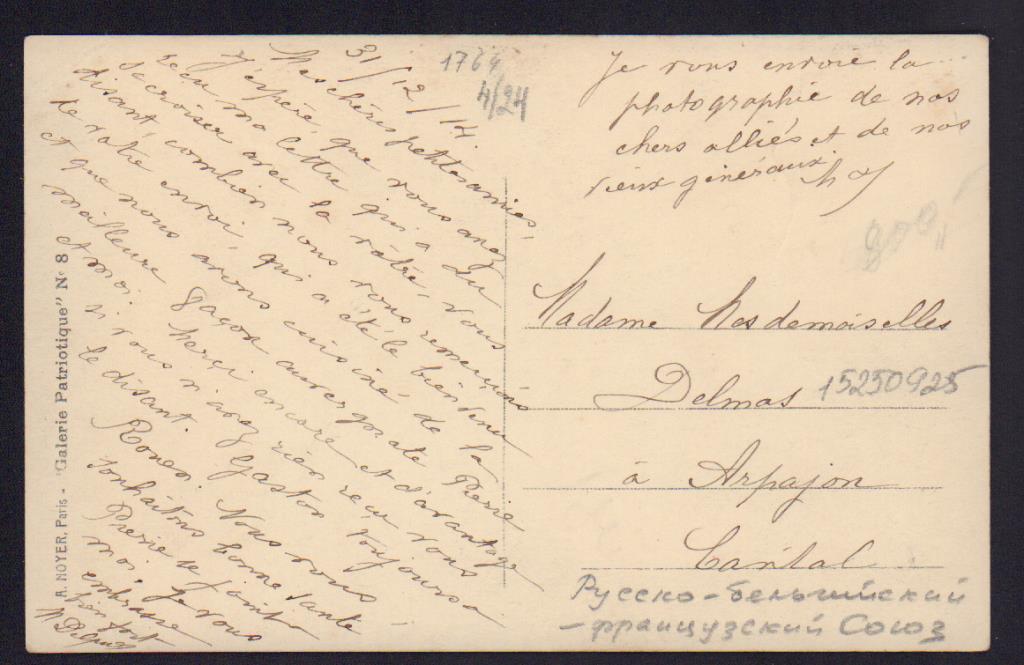 31/12/14
Mes chères petites amies,
J'espère, que vous avez
reçu ma lettre qui a du
se croiser avec la vôtre, vous
disant, combien nous vous remercions
de votre envoi, qui a été le bien venu
et que nous avons cuisiné de la
meilleure façon auvergnate Pierre
et moi. Merci encore et d'avantage
si vous n'avez rien reçu vous
le disant. Gaston toujours à
Rouen. Nous vous
souhaitons bonne santé
Pierre se joint à
moi, je vous
embrasse
bien fort
1764
4/24
Je vous envoie la
photographie de nos
chers alliés et de nos
vieux généraux.
800
Madame Mesdemoiselles
Delmas
15250925
à Arpajon
Cantal
Русско-бельгийский
-французский Союз
A. NOYER, Paris - "Galerie Patriotique" N° 8